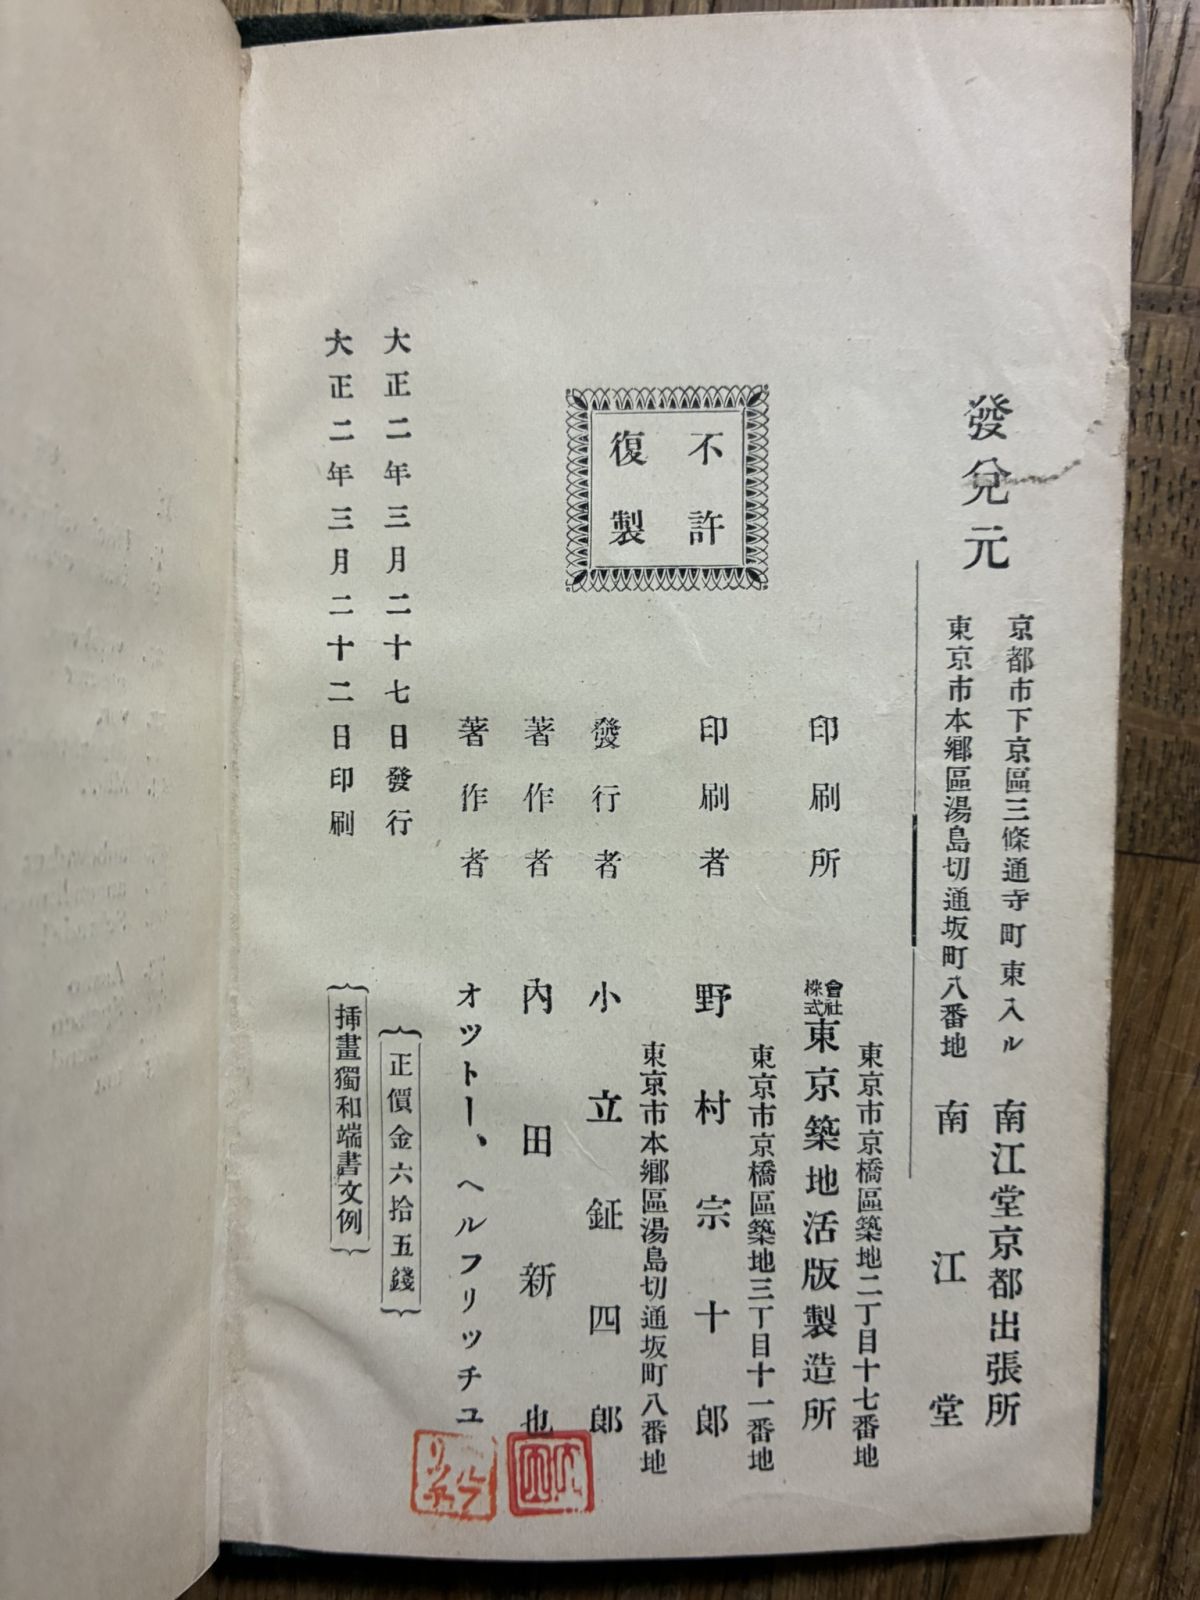 大正二年三月二十二日印刷
大正二年三月二十七日發行
挿畫獨和端書文例
正價金六拾五錢
著作者 オツトー、ヘルフリッチユ
著作者 内田新也
發行者 小立鉦四郎
東京市本鄉區湯島切通坂町八番地
不許
復製
印刷者 野村宗十郎
東京市京橋區築地三丁目十一番地
印刷所 株式會社東京築地活版製造所
東京市京橋區築地二丁目十七番地
發兌元
東京市本鄉區湯島切通坂町八番地 南江堂
京都市下京區三條通寺町東入ル 南江堂京都出張所